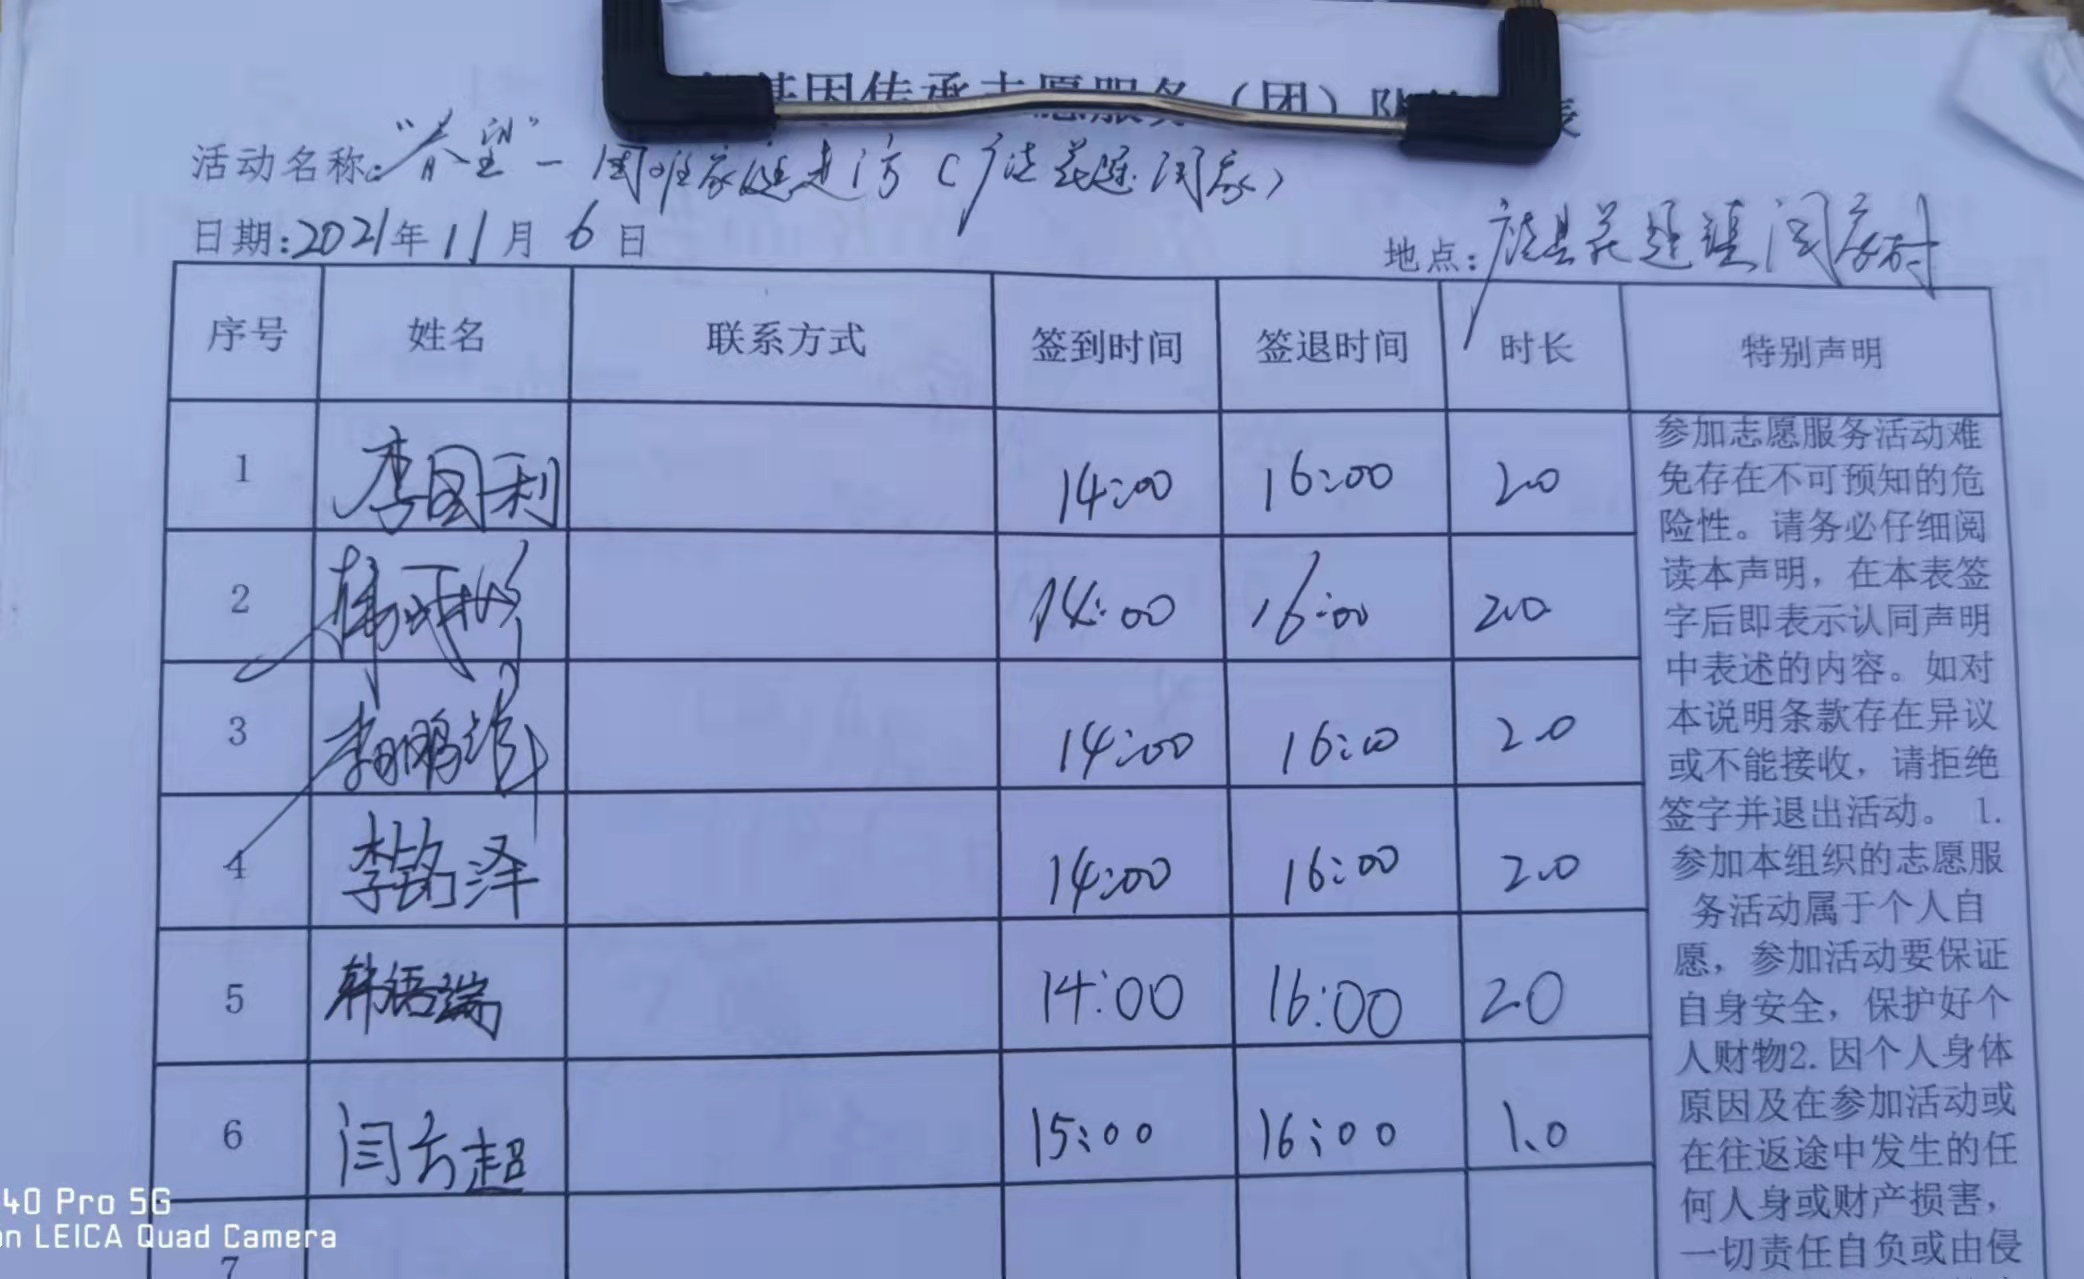 基因传承志愿服务（团）队
活动名称:"春望"一困难家庭走访（ 闫家）
日期:2021年11月6日
地点: 县 镇闫家村
序号 姓名 联系方式 签到时间 签退时间 时长 特别声明
1 李国利 14:00 16:00 2.0
2 韩 14:00 16:00 2.0
3 李鹏 14:00 16:00 2.0
4 李铭泽 14:00 16:00 2.0
5 韩语端 14:00 16:00 2.0
6 闫方超 15:00 16:00 1.0
7
参加志愿服务活动难
免存在不可预知的危
险性。请务必仔细阅
读本声明，在本表签
字后即表示认同声明
中表述的内容。如对
本说明条款存在异议
或不能接收，请拒绝
签字并退出活动。 1.
参加本组织的志愿服
务活动属于个人自
愿，参加活动要保证
自身安全，保护好个
人财物2.因个人身体
原因及在参加活动或
在往返途中发生的任
何人身或财产损害，
一切责任自负或由侵
40 Pro 5G
on LEICA Quad Camera